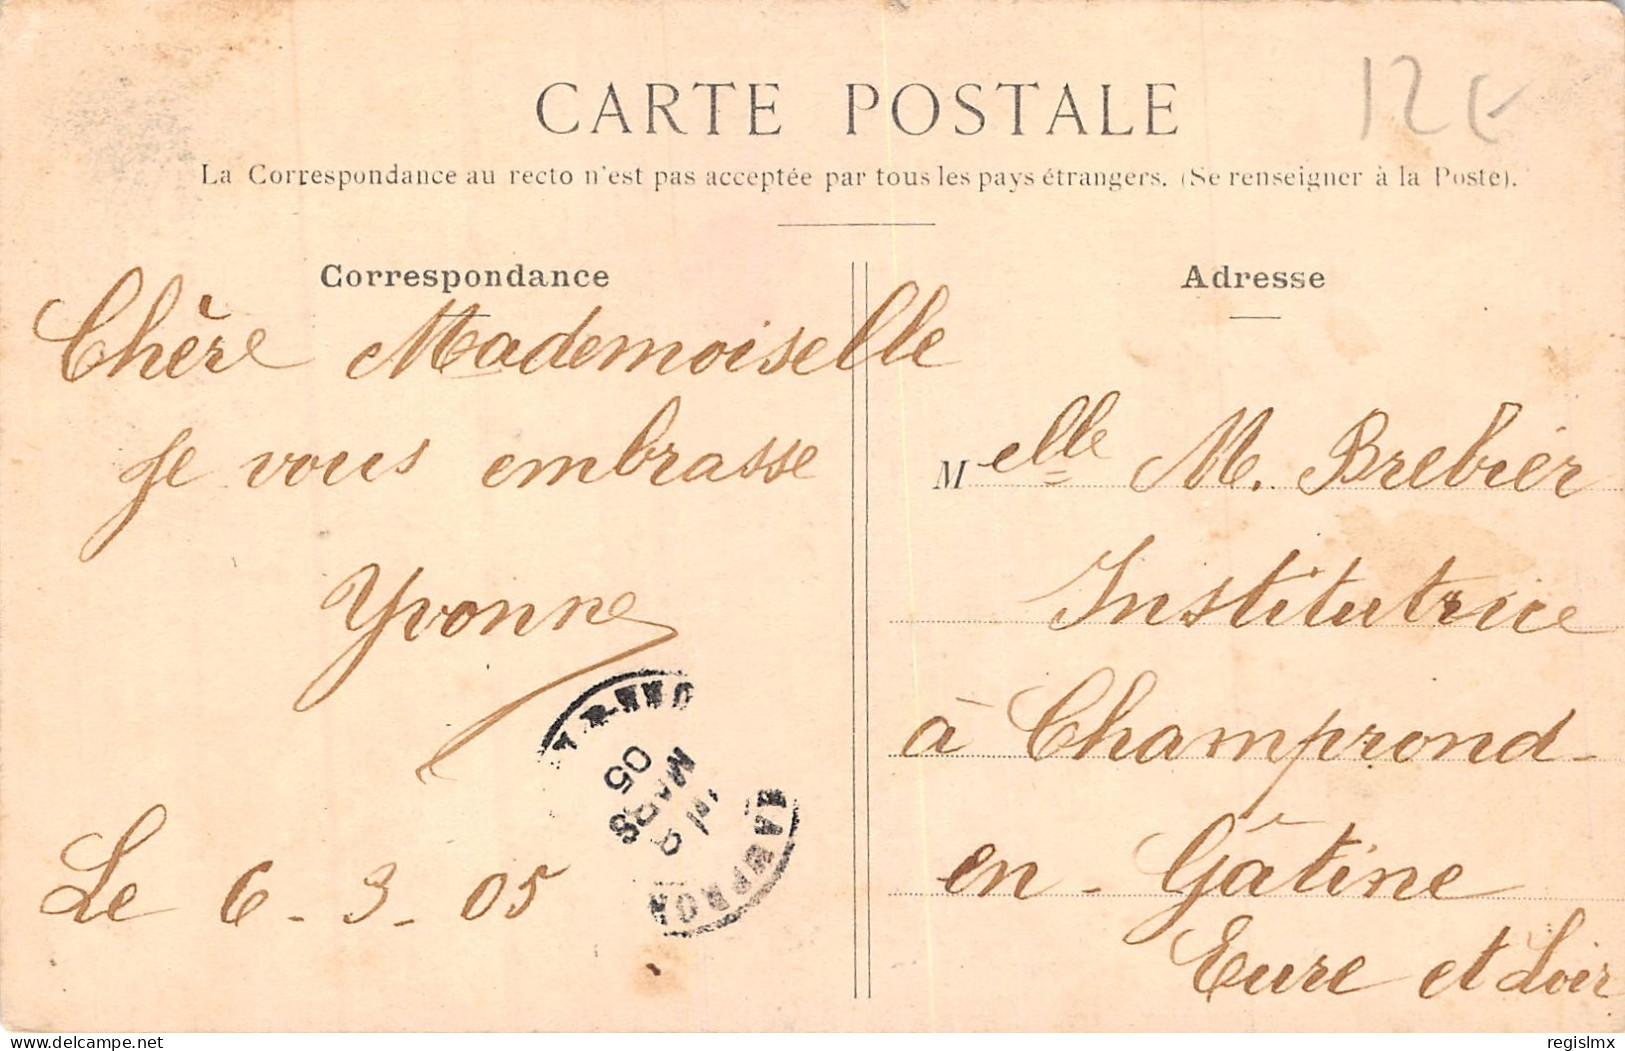 CARTE POSTALE
12 €
La Correspondance au recto n'est pas acceptée par tous les pays étrangers. (Se renseigner à la Poste).
Correspondance
Chère Mademoiselle
Je vous embrasse
Yvonne
Le 6-3-05
MARS
05
Adresse
Melle M. Brebier
Institutrice
à Champrond-
en-Gâtine
Eure et Loir
www.delcampe.net
regislmx